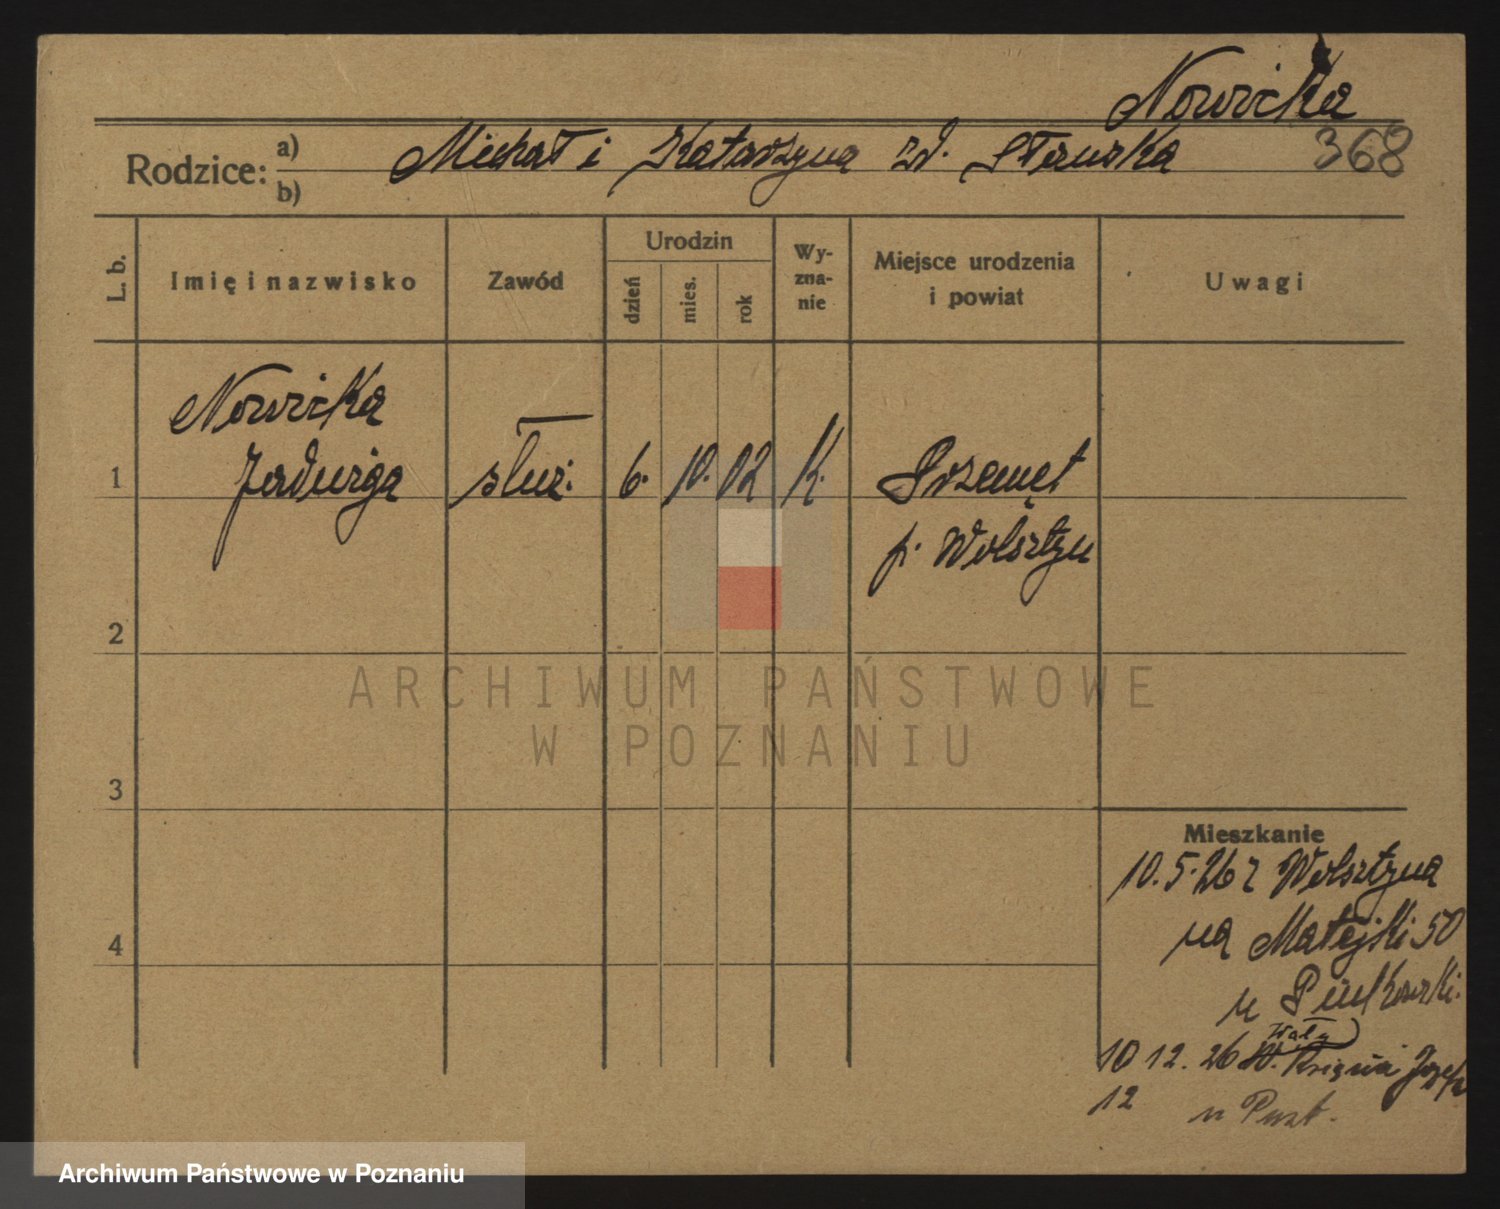 Nowicka
368
Rodzice: a) Michał i Katarzyna zd.
b)
L. b.
Imię i nazwisko
Zawód
Urodzin
dzień
mies.
rok
Wy-
zna-
nie
Miejsce urodzenia
i powiat
Uwagi
Nowicka
1 Jadwiga służ. 6. 10. 02 K. Przemęt
p. Wolsztyn
2
ARCHIWUM PAŃSTWOWE
W POZNANIU
3
Mieszkanie
10.5.26 z Wolsztyna
na Matejki 50
4
u
Wały
10 12. 26 W.
12 u
Archiwum Państwowe w Poznaniu